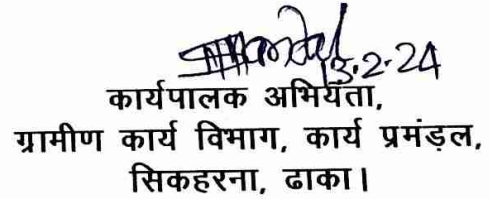 13.2.24
कार्यपालक अभियंता,
ग्रामीण कार्य विभाग, कार्य प्रमंड़ल,
सिकहरना, ढाका।